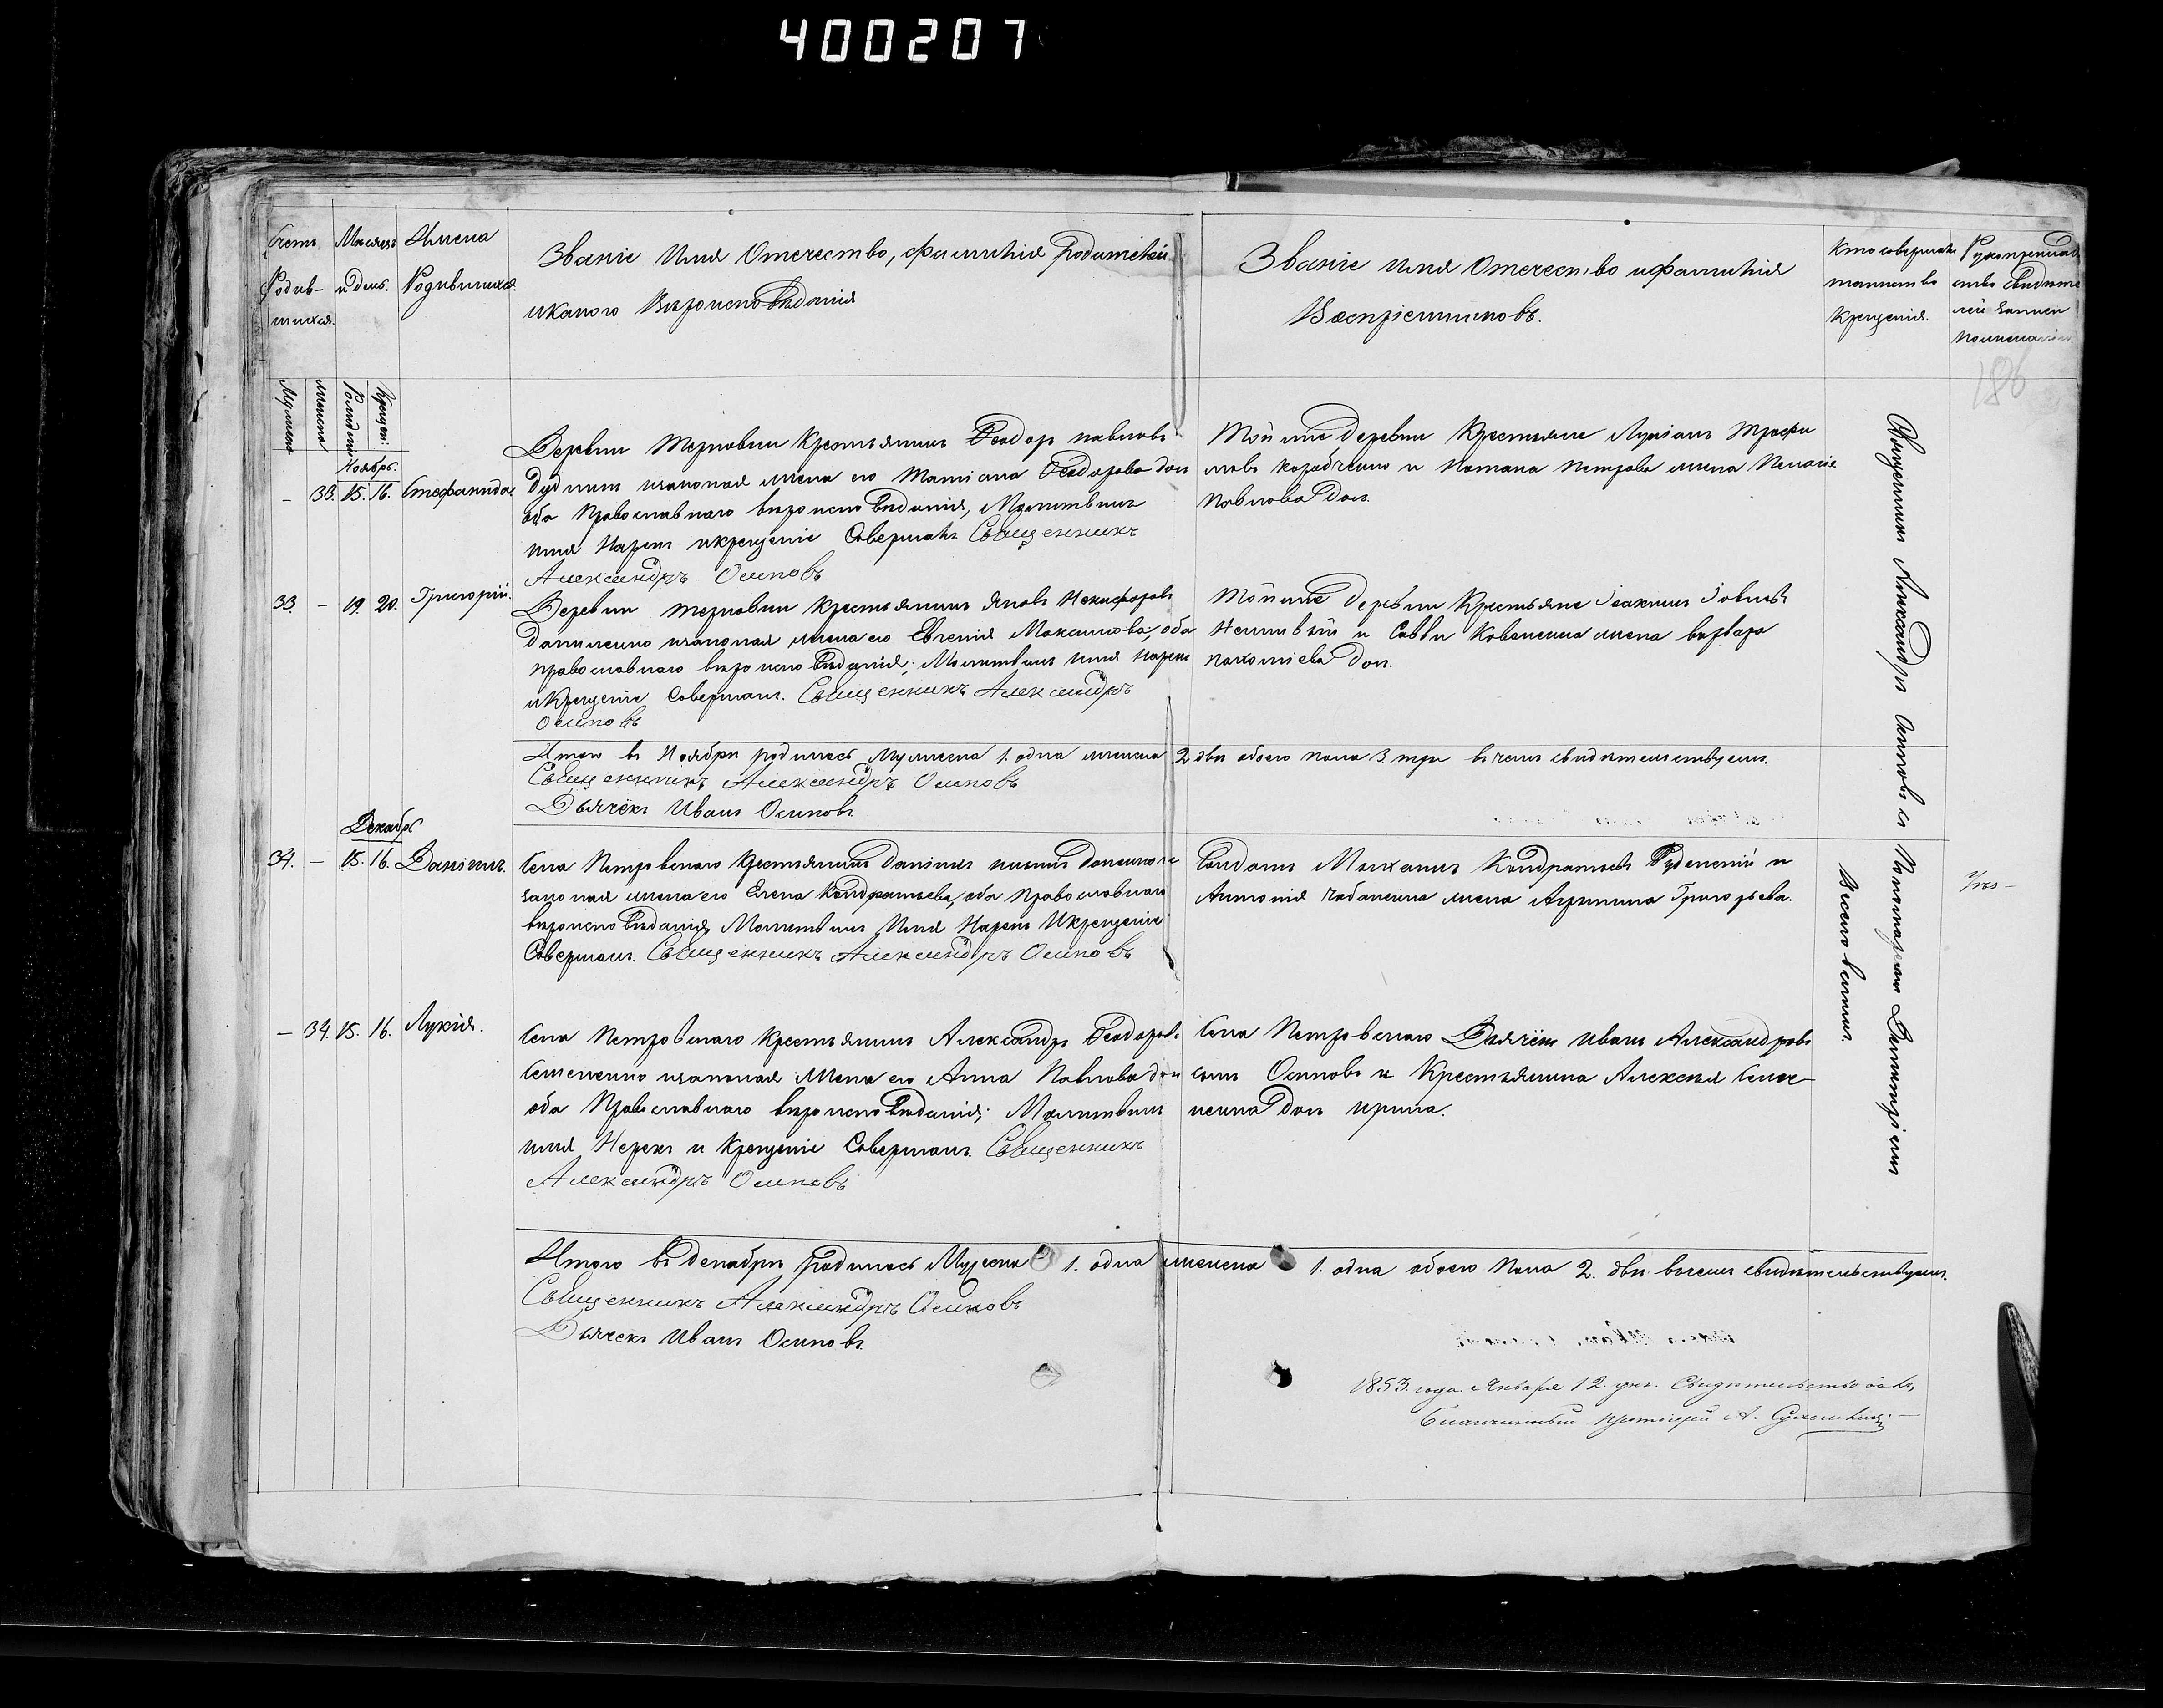 400207
Счетъ Родив-шихся.
Мужеска
женска
Месяцъ и день.
Рожденія
Крещен:
Имена Родившихся.
Званіе Имя Отечество, фамилія Родителей
и какого Вѣроисповѣданія
Званіе имя Отечество и фамилія
Воспріемниковъ.
Кто совершалъ
таинство
Крещенія.
Рукоприклад
ство Свидѣте
лей записи
по желанію
186
Ноябрь.
- 33. 15. 16. Стефанида.
Деревни Терновки Крестьянинъ Ѳеодоръ павловъ
Дудникъ изаконая жена его Татіана Ѳеодорова дочь
оба Православнаго вѣроисповѣданія, Молитвилъ
имя Нарекъ икрещеніе Совершалъ Священникъ
Александръ Осиповъ
Тойже деревни Крестьяне Лукіанъ Трофи
мовъ Коробченко и Потапа Петрова жена Пелагіе
Павлова Дочь.
33. - 19. 20. Григорій.
Деревни терновки крестьянинъ Яковъ Никифоровъ
Даниленко изаконая жена его Евгенія Максимова, оба
православнаго вѣроисповѣданія; Молитвилъ имя Нарекъ
икрещеніе Совершалъ. Священникъ Александръ
Осиповъ
Тойже Деревни Крестьяне Іоакимъ Іовлевъ
и Саввы жена варвара
пахоміева дочь.
Итого въ Ноябрѣ родилось Мужеска 1. одна женска 2 двѣ обоего пола 3. три въ чемъ свидѣтельствуемъ.
Священникъ Александръ Осиповъ
Дьячекъ Иванъ Осиповъ
Декабрь
34. - 15. 16. Даніилъ.
Села Петровскаго Крестьянинъ Даніилъ
законая жена его Елена Кондратьева, оба Православнаго
вѣроисповѣданія Молитвилъ Имя Нарекъ Икрещеніе
Совершалъ. Священникъ Александръ Осиповъ
Солдатъ Михаилъ Кондратьевъ Руденскій и
Антонія Чабаненка жена Агрипина Григорьева.
- 34. 15. 16. Лукія.
Села Петровскаго Крестьянинъ Александръ Ѳеодоровъ
Семененко изаконая Жена его Анна Павлова дочь
оба Православнаго вѣроисповѣданія; Молитвилъ
имя Нарекъ и Крещеніе Совершалъ. Священникъ
Александръ Осиповъ
Села Петровскаго Дьячёкъ Иванъ Александровъ
сынъ Осиповъ и Крестьянина Алексѣя Семе-
ненка дочь ирина.
Священникъ Александръ Осиповъ съ Пономаремъ Димитріемъ
Всеволовскимъ.
Итого въ декабрѣ родилось Мужеска 1. одна женска 1. одна обоего пола 2. двѣ вчемъ свидѣтельствуемъ.
Священникъ Александръ Осиповъ
Дьячекъ Иванъ Осиповъ.
1853. года. Января 12. дня. Свидѣтельствовалъ,
Благочинный протоіерей А.